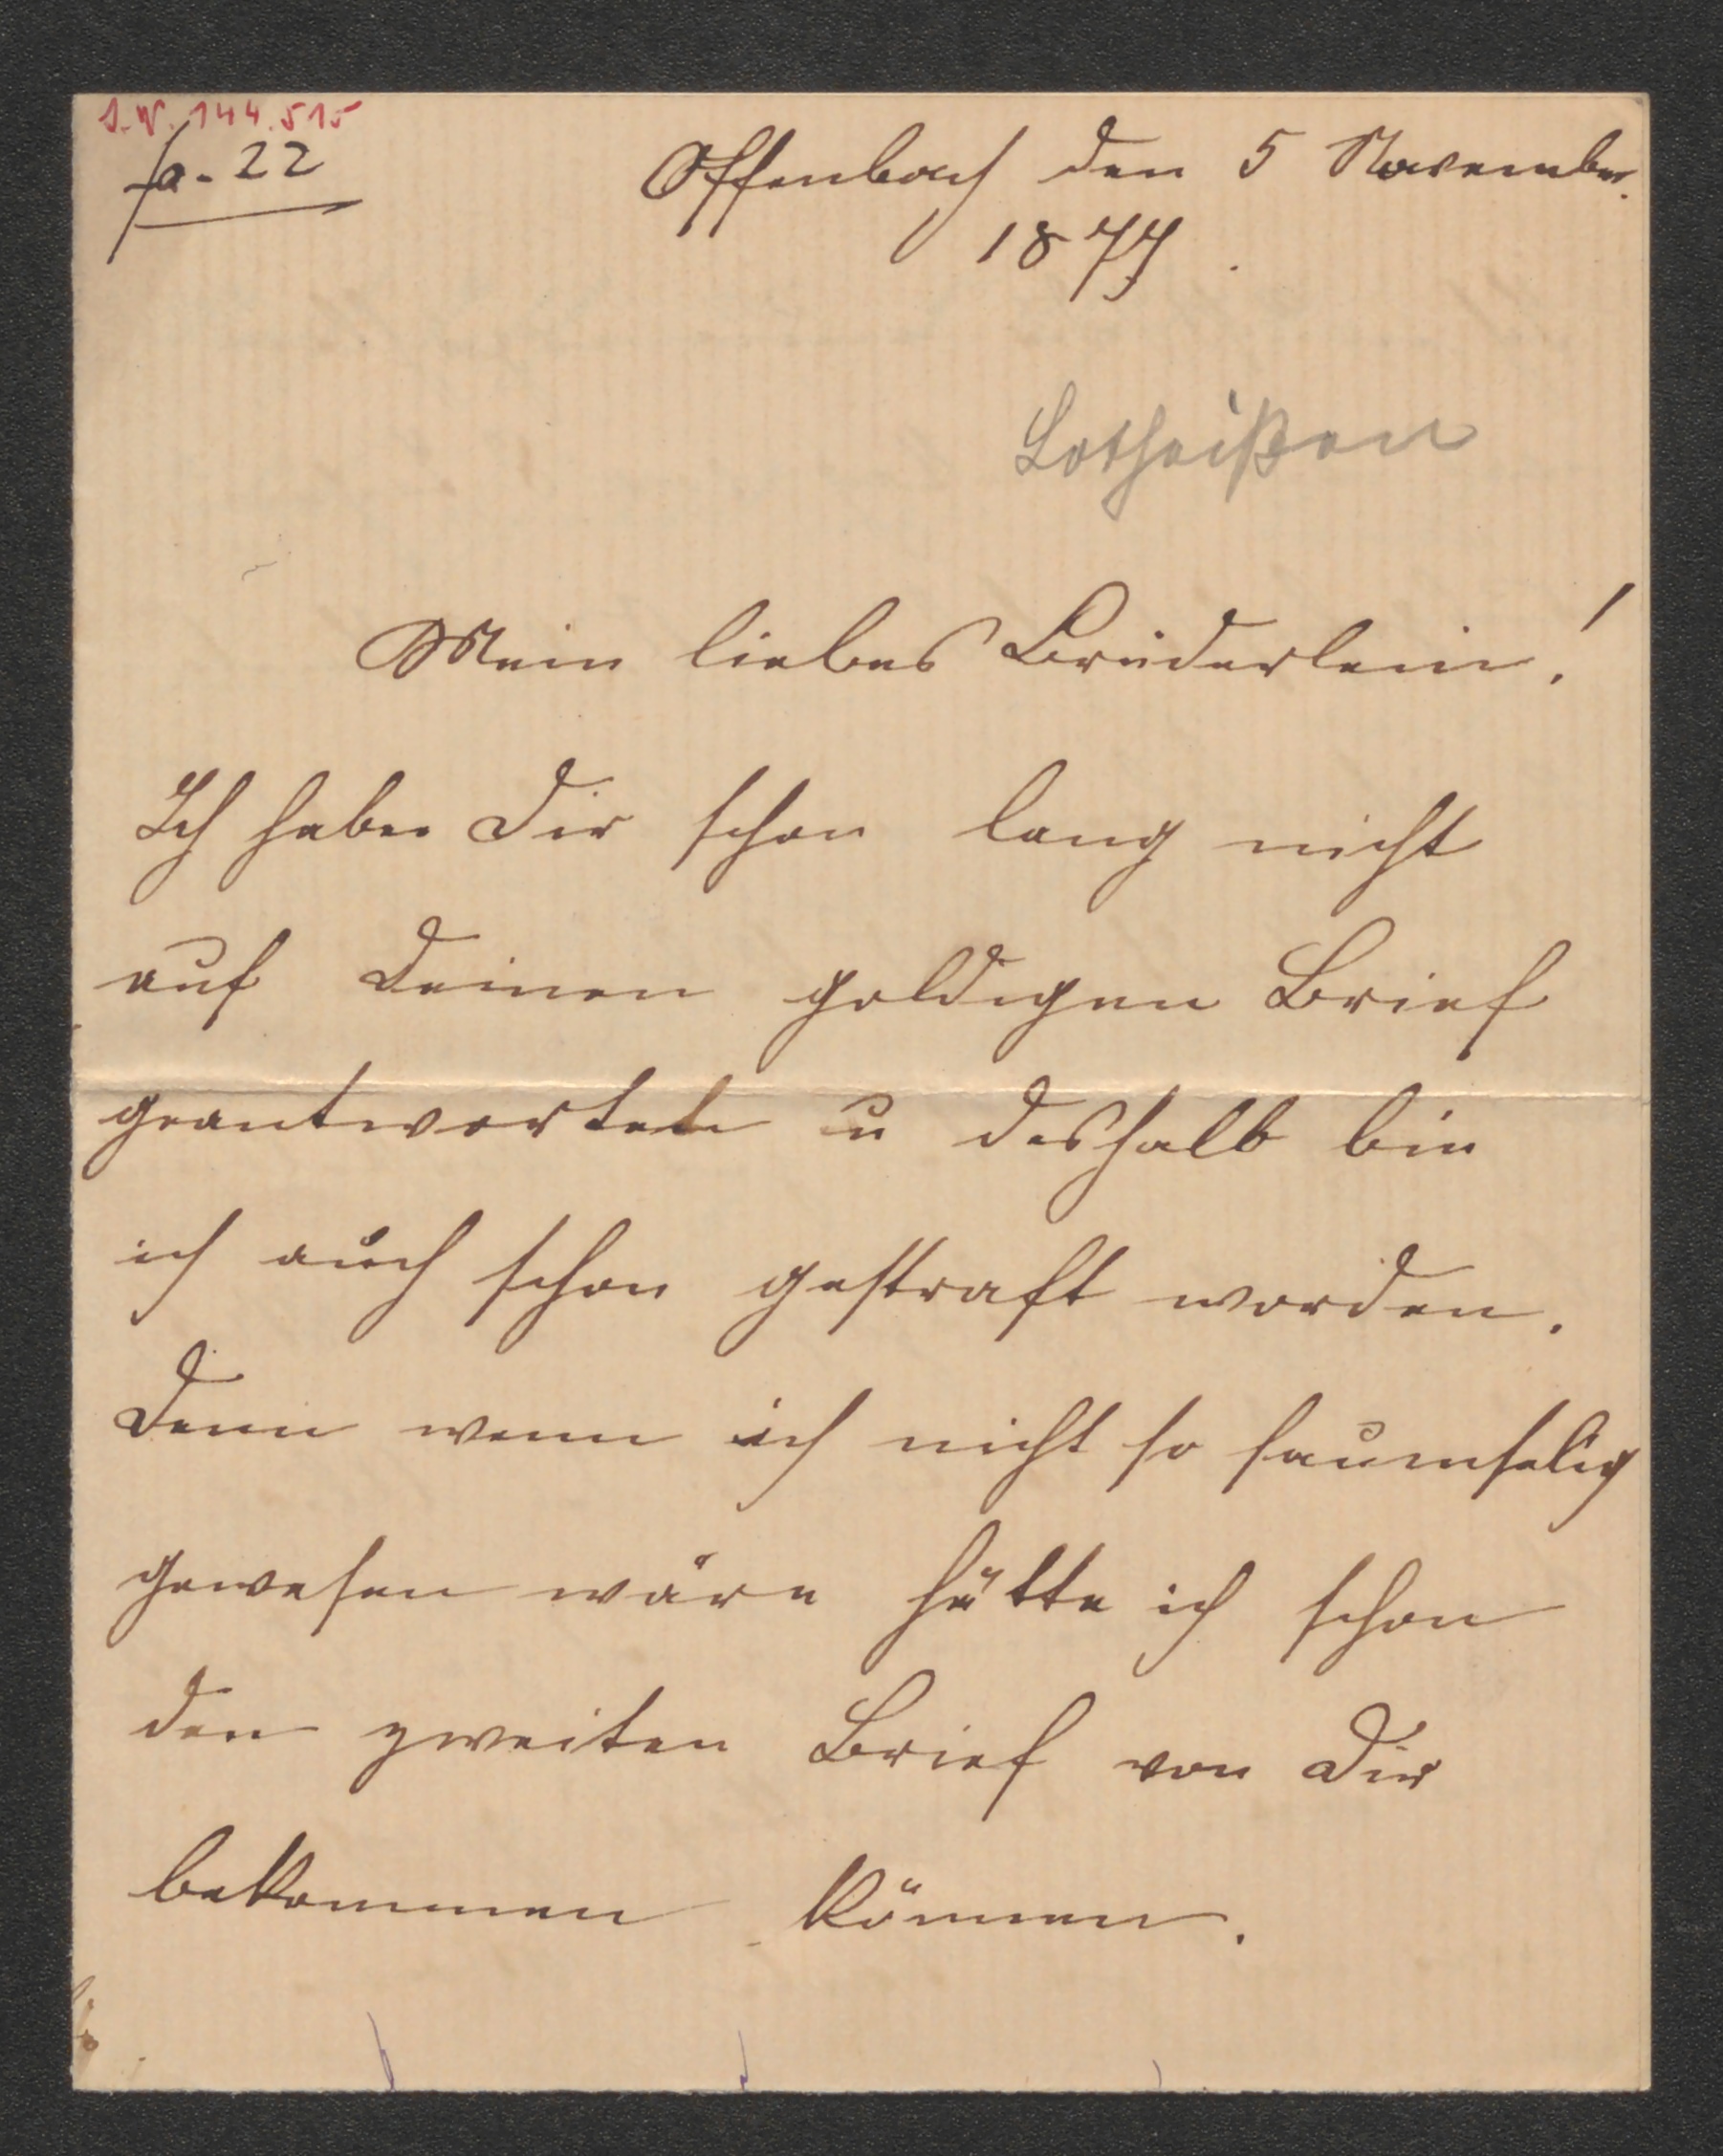 J.N. 144.515
fa. 22
Offenbach den 5 November.
1877.
Lotheißen
Mein liebes Brüderlein!
Ich habe Dir schon lang nicht
auf Deinen goldigen Brief
geantwortet u deshalb bin
ich auch schon gestraft worden.
Denn wenn ich nicht so saumselig
gewesen wäre hätte ich schon
den zweiten Brief von Dir
bekommen können.